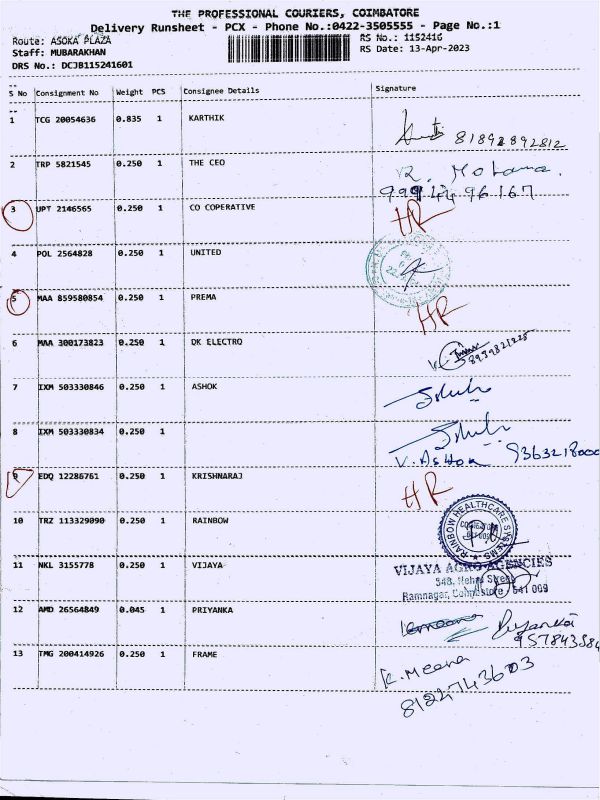 THE PROFESSIONAL COURIERS, COIMBATORE
Delivery Runsheet - PCX - Phone No.:0422-3505555 - Page No.:1
Route: ASOKA PLAZA
RS No.: 1152416
Staff: MUBARAKHAN
RS Date: 13-Apr-2023
DRS No.: DCJB115241601
S No Consignment No Weight PCS Consignee Details Signature
1 TCG 20054636 0.835 1 KARTHIK
81892892812
2 TRP 5821545 0.250 1 THE CEO
R. Mohana.
99944 96167
3 UPT 2146565 0.250 1 CO COPERATIVE HR
4 POL 2564828 0.250 1 UNITED
5 MAA 859580854 0.250 1 PREMA HR
6 MAA 300173823 0.250 1 DK ELECTRO
7 IXM 503330846 0.250 1 ASHOK
8 IXM 503330834 0.250 1
V. Ashok 9363218000
9 EDQ 12286761 0.250 1 KRISHNARAJ HR
10 TRZ 113329090 0.250 1 RAINBOW
RAINBOW HEALTHCARE SYSTEMS
11 NKL 3155778 0.250 1 VIJAYA
VIJAYA AGRO AGENCIES
548, Nehru Street
Ramnagar, Coimbatore - 641 009
12 AMD 26564849 0.045 1 PRIYANKA
K.meena Priyanka
957843584
13 TMG 200414926 0.250 1 FRAME
K. Meena
8122743603